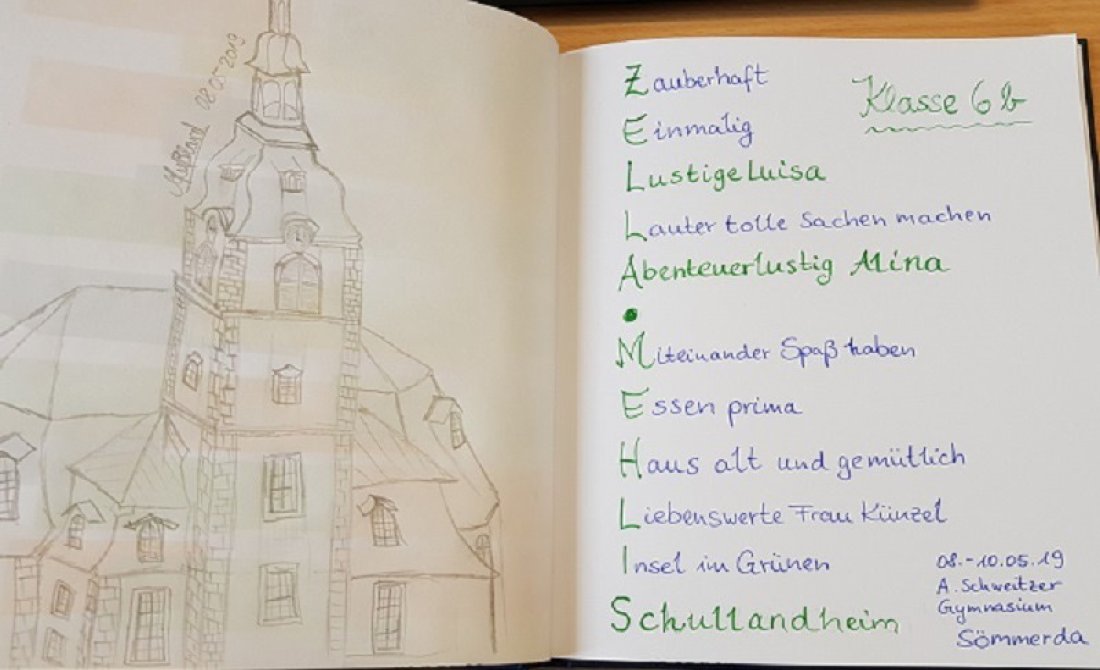 08.05.2019
Zauberhaft
Klasse 6b
Einmalig
Lustige Luisa
Lauter tolle Sachen machen
Abenteuerlustig Alina
•
Miteinander Spaß haben
Essen prima
Haus alt und gemütlich
Liebenswerte Frau Künzel
Insel im Grünen
Schullandheim
08.-10.05.19
A. Schweitzer
Gymnasium
Sömmerda